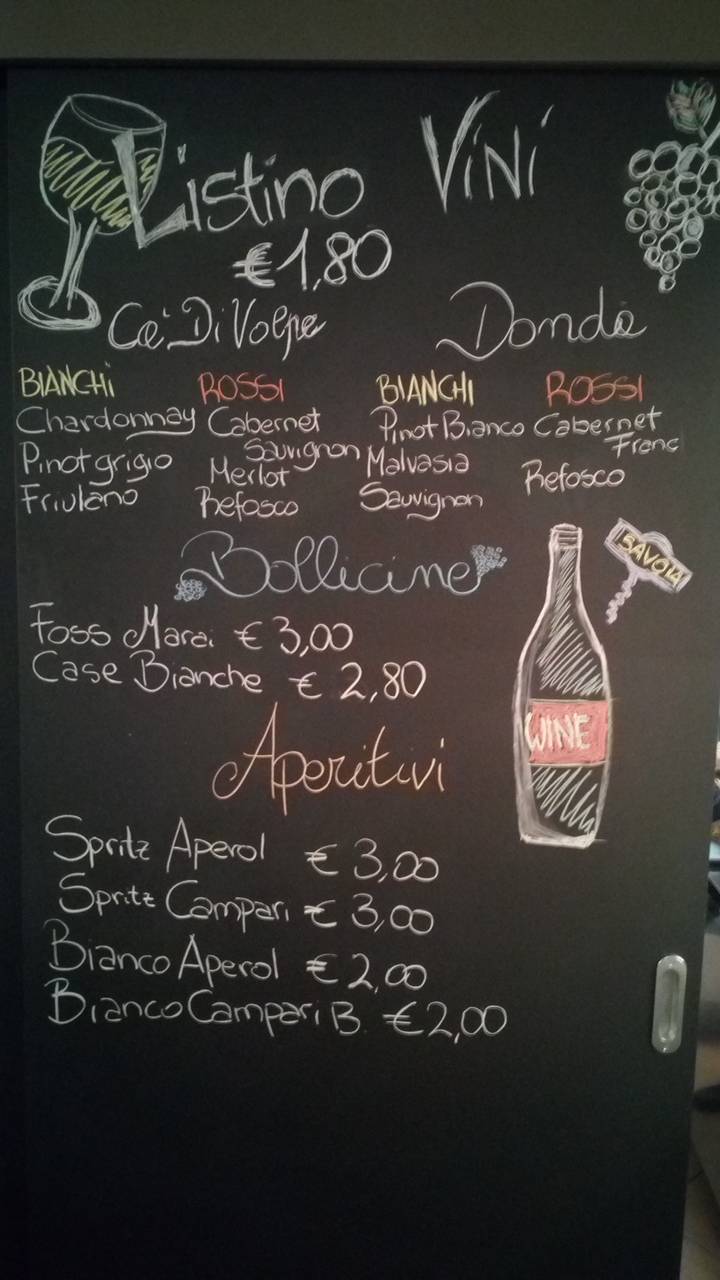 Listino Vini
€1,80
Ca' Di Volpe
BIANCHI
Chardonnay
Pinot grigio
Friulano
ROSSI
Cabernet
Sauvignon
Merlot
Refosco
Dondè
BIANCHI
Pinot Bianco
Malvasia
Sauvignon
ROSSI
Cabernet
Franc
Refosco
Bollicine
Foss Marai € 3,00
Case Bianche € 2,80
SAVOIA
WINE
Aperitivi
Spritz Aperol € 3,00
Spritz Campari € 3,00
Bianco Aperol € 2,00
Bianco Campari B. € 2,00